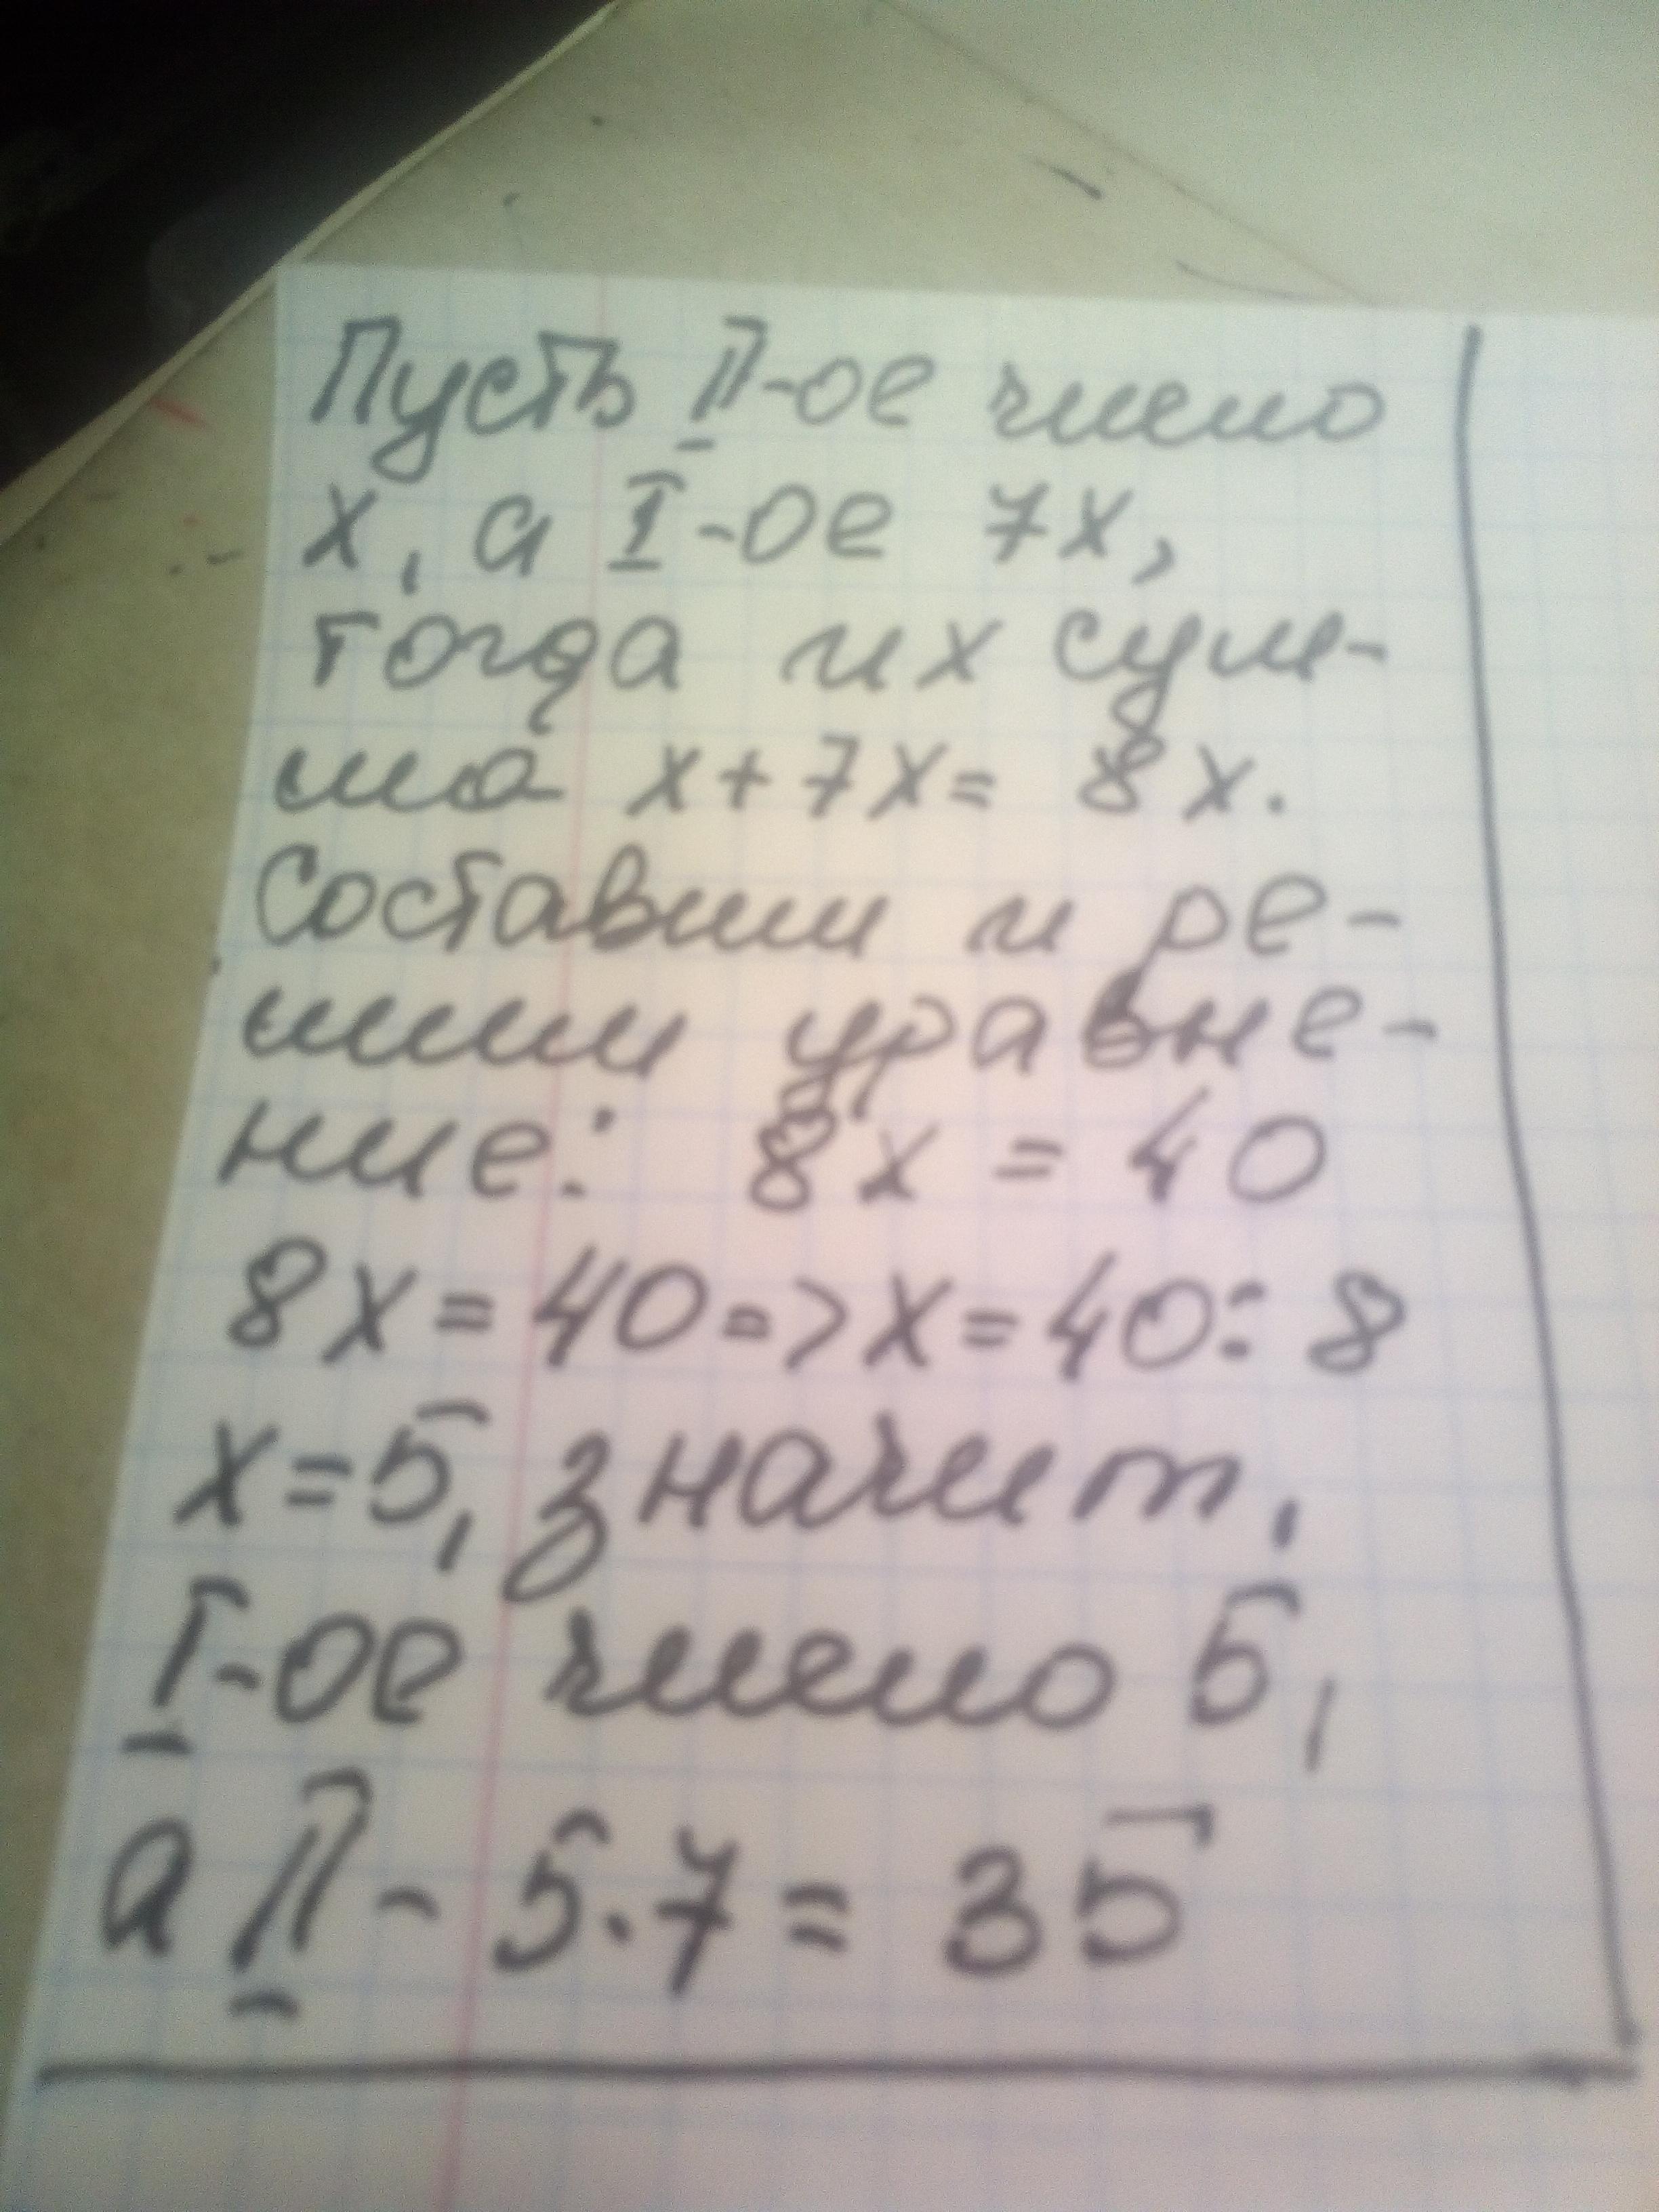 Пусть II-ое число
х, а I-ое 7х,
тогда их сум-
ма х+7х= 8х.
Составим и ре-
шим уравне-
ние: 8х = 40
8х = 40 => х = 40 : 8
х=5, значит,
I-ое число 5,
а II - 5·7 = 35